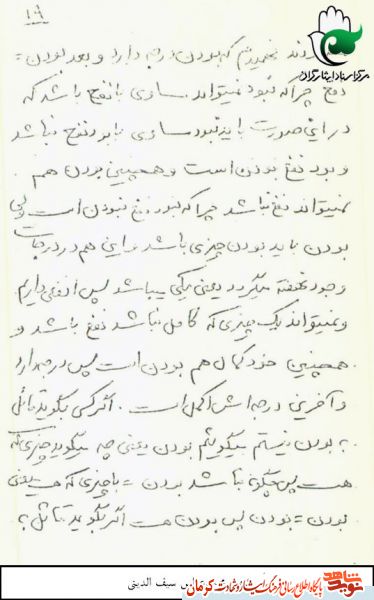 ۱۹
مرکز اسناد ایثارگران
نفهمیدیم که بودن درجه دارد و بعد بودن =
نفع چرا که نبود نمیتواند مساوی با نفع باشد که
در این صورت باید نبود مساوی با بود نفع باشد
و بود نفع بودن است و همچنین بودن هم
نمیتواند نفع نباشد چرا که نبود نفع نبودن است ولی
بودن باید بودن چیزی باشد و این هم در درجات
وجود نهفته میگردد یعنی یکی میباشد پس انفعی داریم
و نمیتواند یک چیزی که کامل نباشد نفع باشد و
همچنین خود کمال هم بودن است پس درجه دارد
و آخرین درجه اش اکمل است . اگر کسی بگوید قائل
به بودن نیستم میگوئیم بودن یعنی چه میگوید چیزی که
هست پس چگونه نباشد بودن = با چیزی که هست یعنی
بودن = بودن پس بودن هست اگر بگوید قائل به
س سیف الدینی
نوید شاهد
پایگاه اطلاع رسانی فرهنگ ایثار و شهادت کرمان